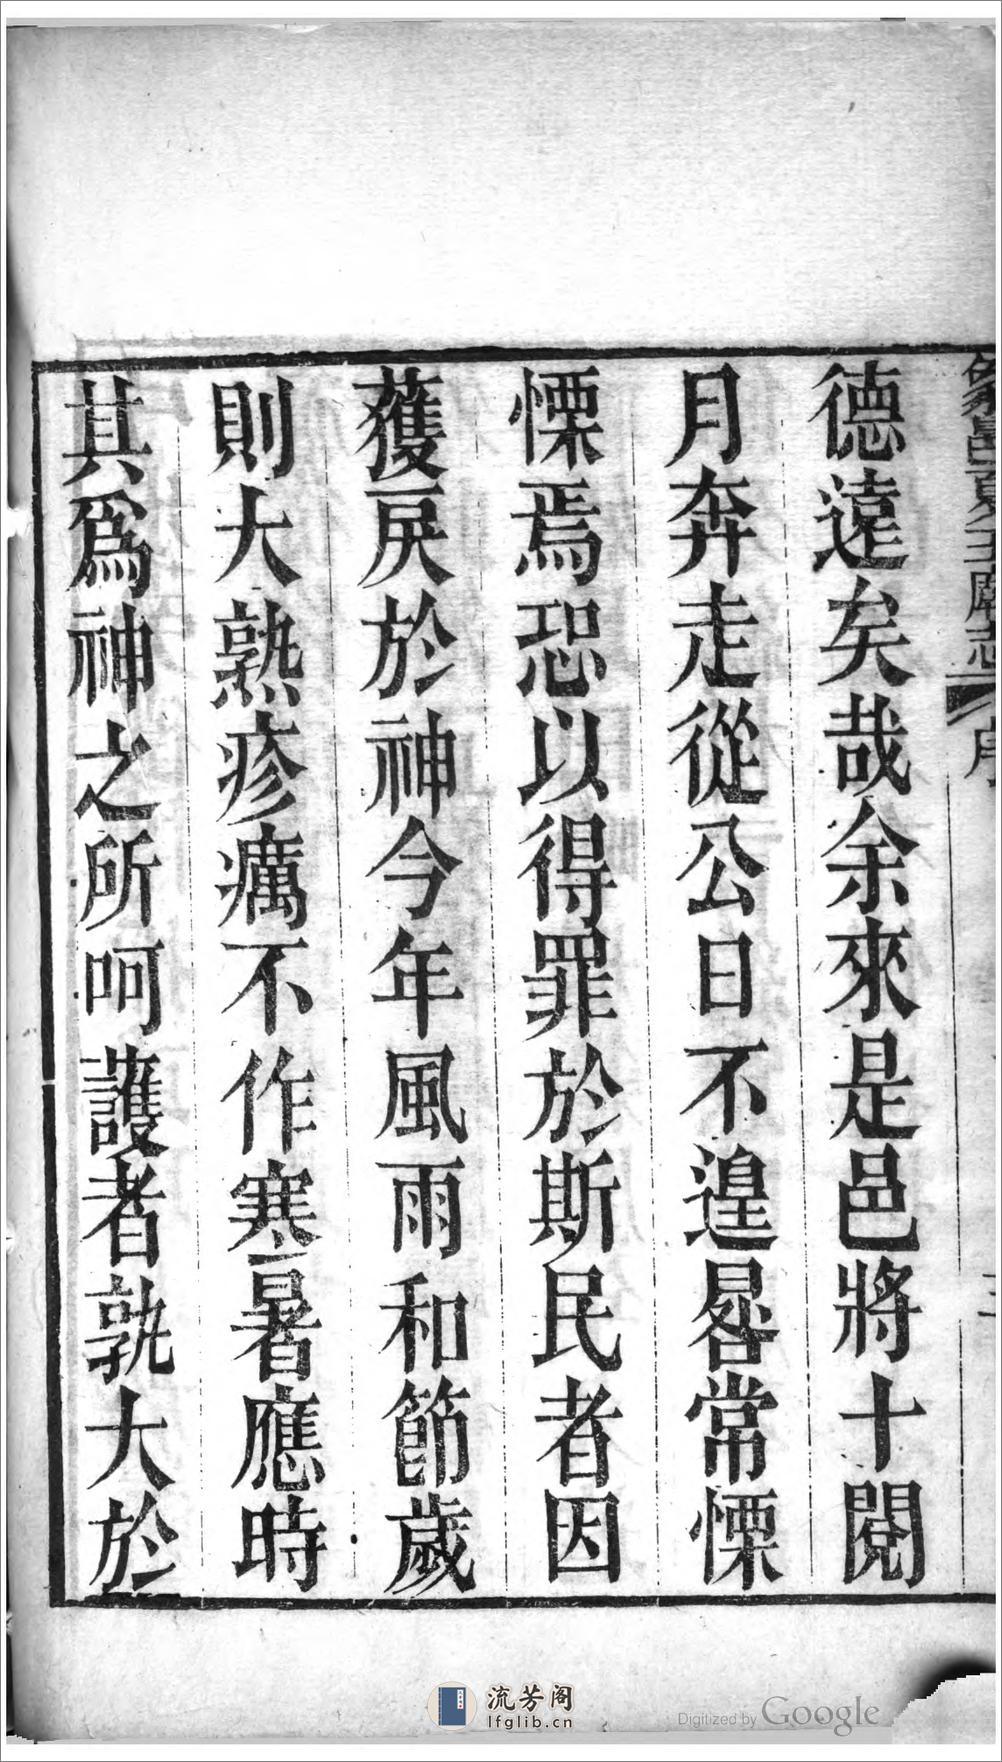 德遠矣哉余來是邑將十閱
月奔走從公日不遑晷常慄
慄焉恐以得罪於斯民者因
獲戾於神今年風雨和節歲
則大熟疹癘不作寒暑應時
其為神之所呵護者孰大於
流芳阁
lfglib.cn
Digitized by Google